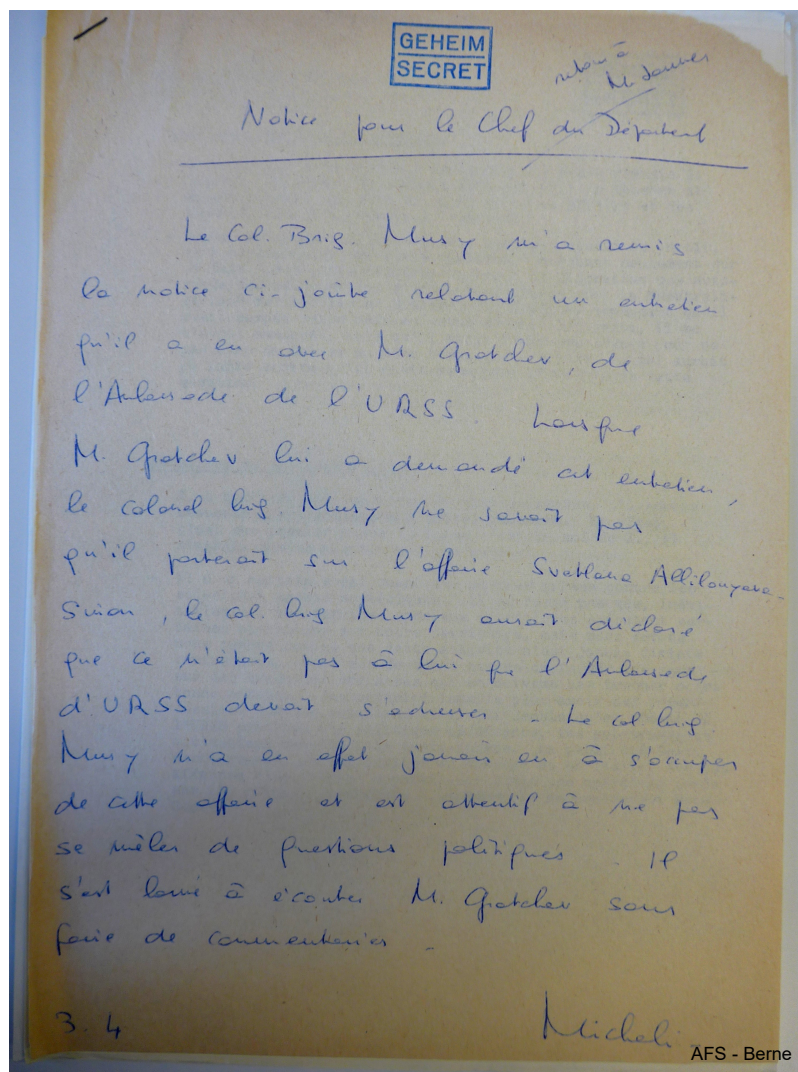 GEHEIM
SECRET
retour à
M. Janner
Notice pour le Chef du Département
Le Col. Brig. Musy m'a remis
la notice ci-jointe relatant un entretien
qu'il a eu avec M. Gratchev, de
l'Ambassade de l'URSS. Lorsque
M. Gratchev lui a demandé cet entretien,
le colonel brig. Musy ne savait pas
qu'il porterait sur l'affaire Svetlana Allilouyeva.
Sinon, le col. brig Musy aurait déclaré
que ce n'était pas à lui que l'Ambassade
d'URSS devait s'adresser. Le col brig.
Musy n'a en effet jamais eu à s'occuper
de cette affaire et est attentif à ne pas
se mêler de questions politiques. Il
s'est borné à écouter M. Gratchev sans
faire de commentaires.
3. 4
Micheli.
AFS - Berne